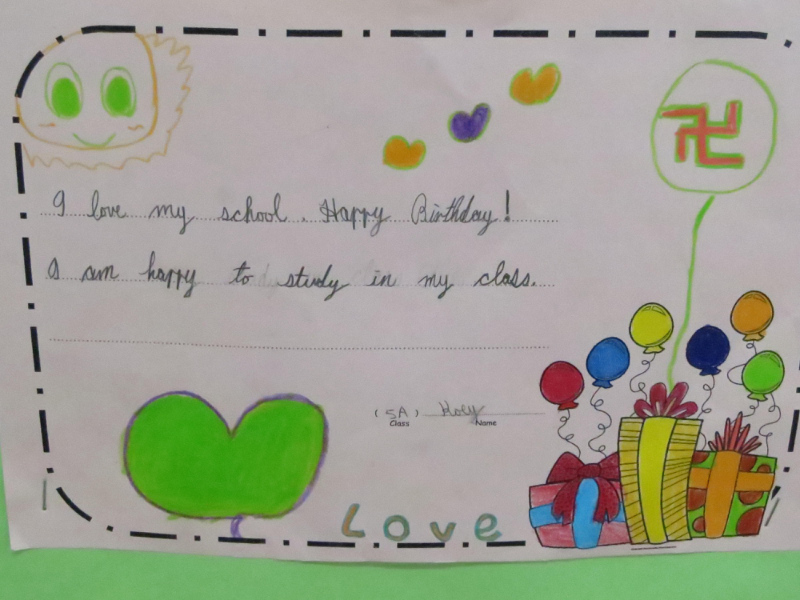 I love my school. Happy Birthday!
I am happy to study in my class.
(5A) Hoey
Class Name
Love